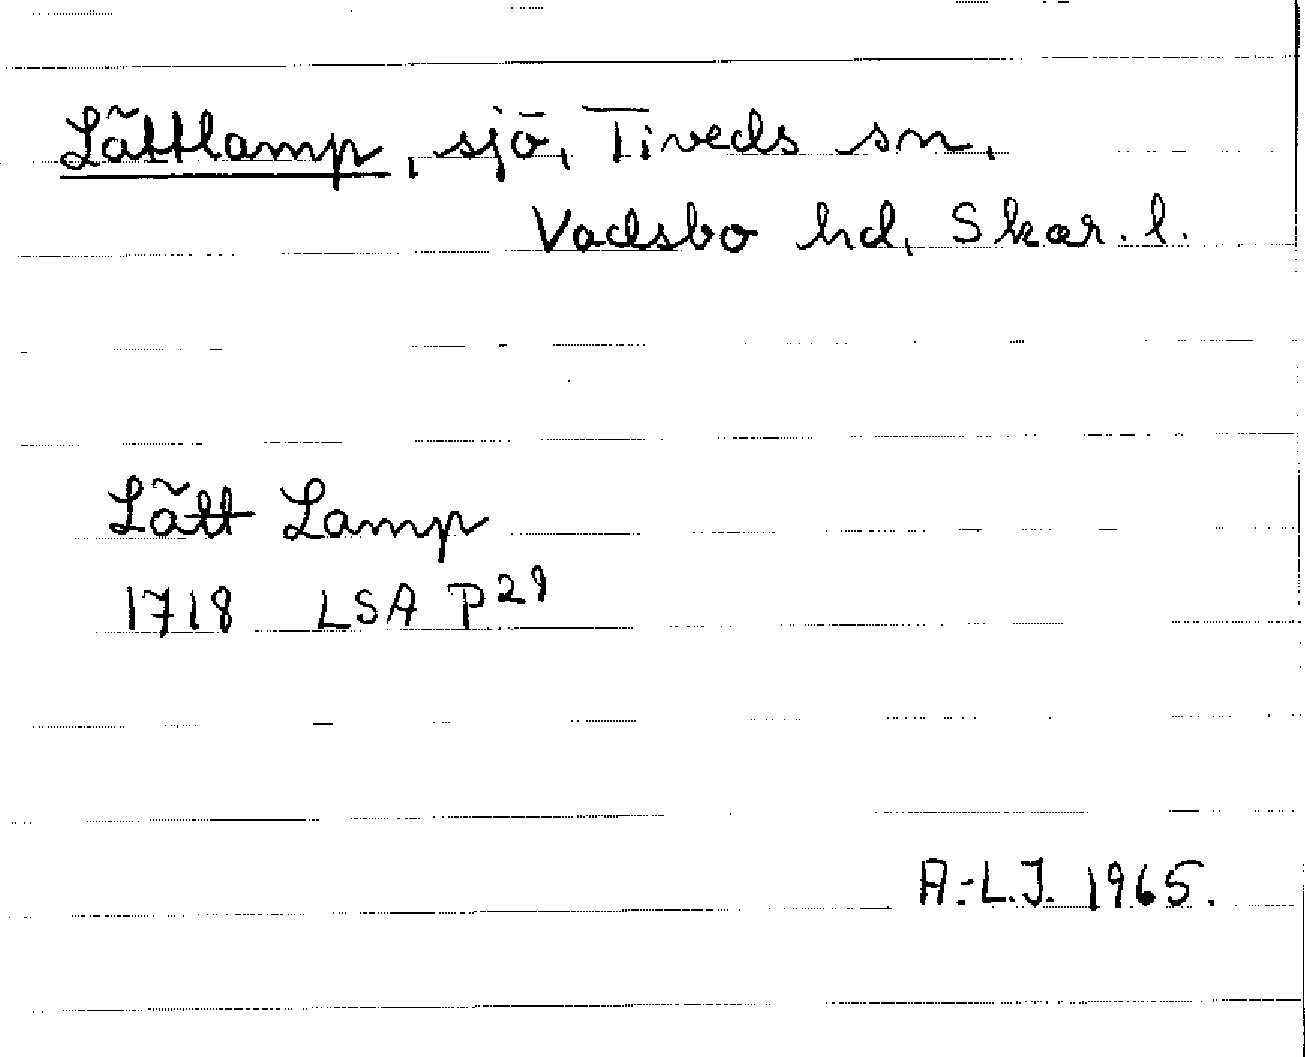 Lättlamp, sjö, Tiveds sn,
Vadsbo hd, Skar. l.
Lätt Lamp
1718 LSA P 29
A.-L.J. 1965.